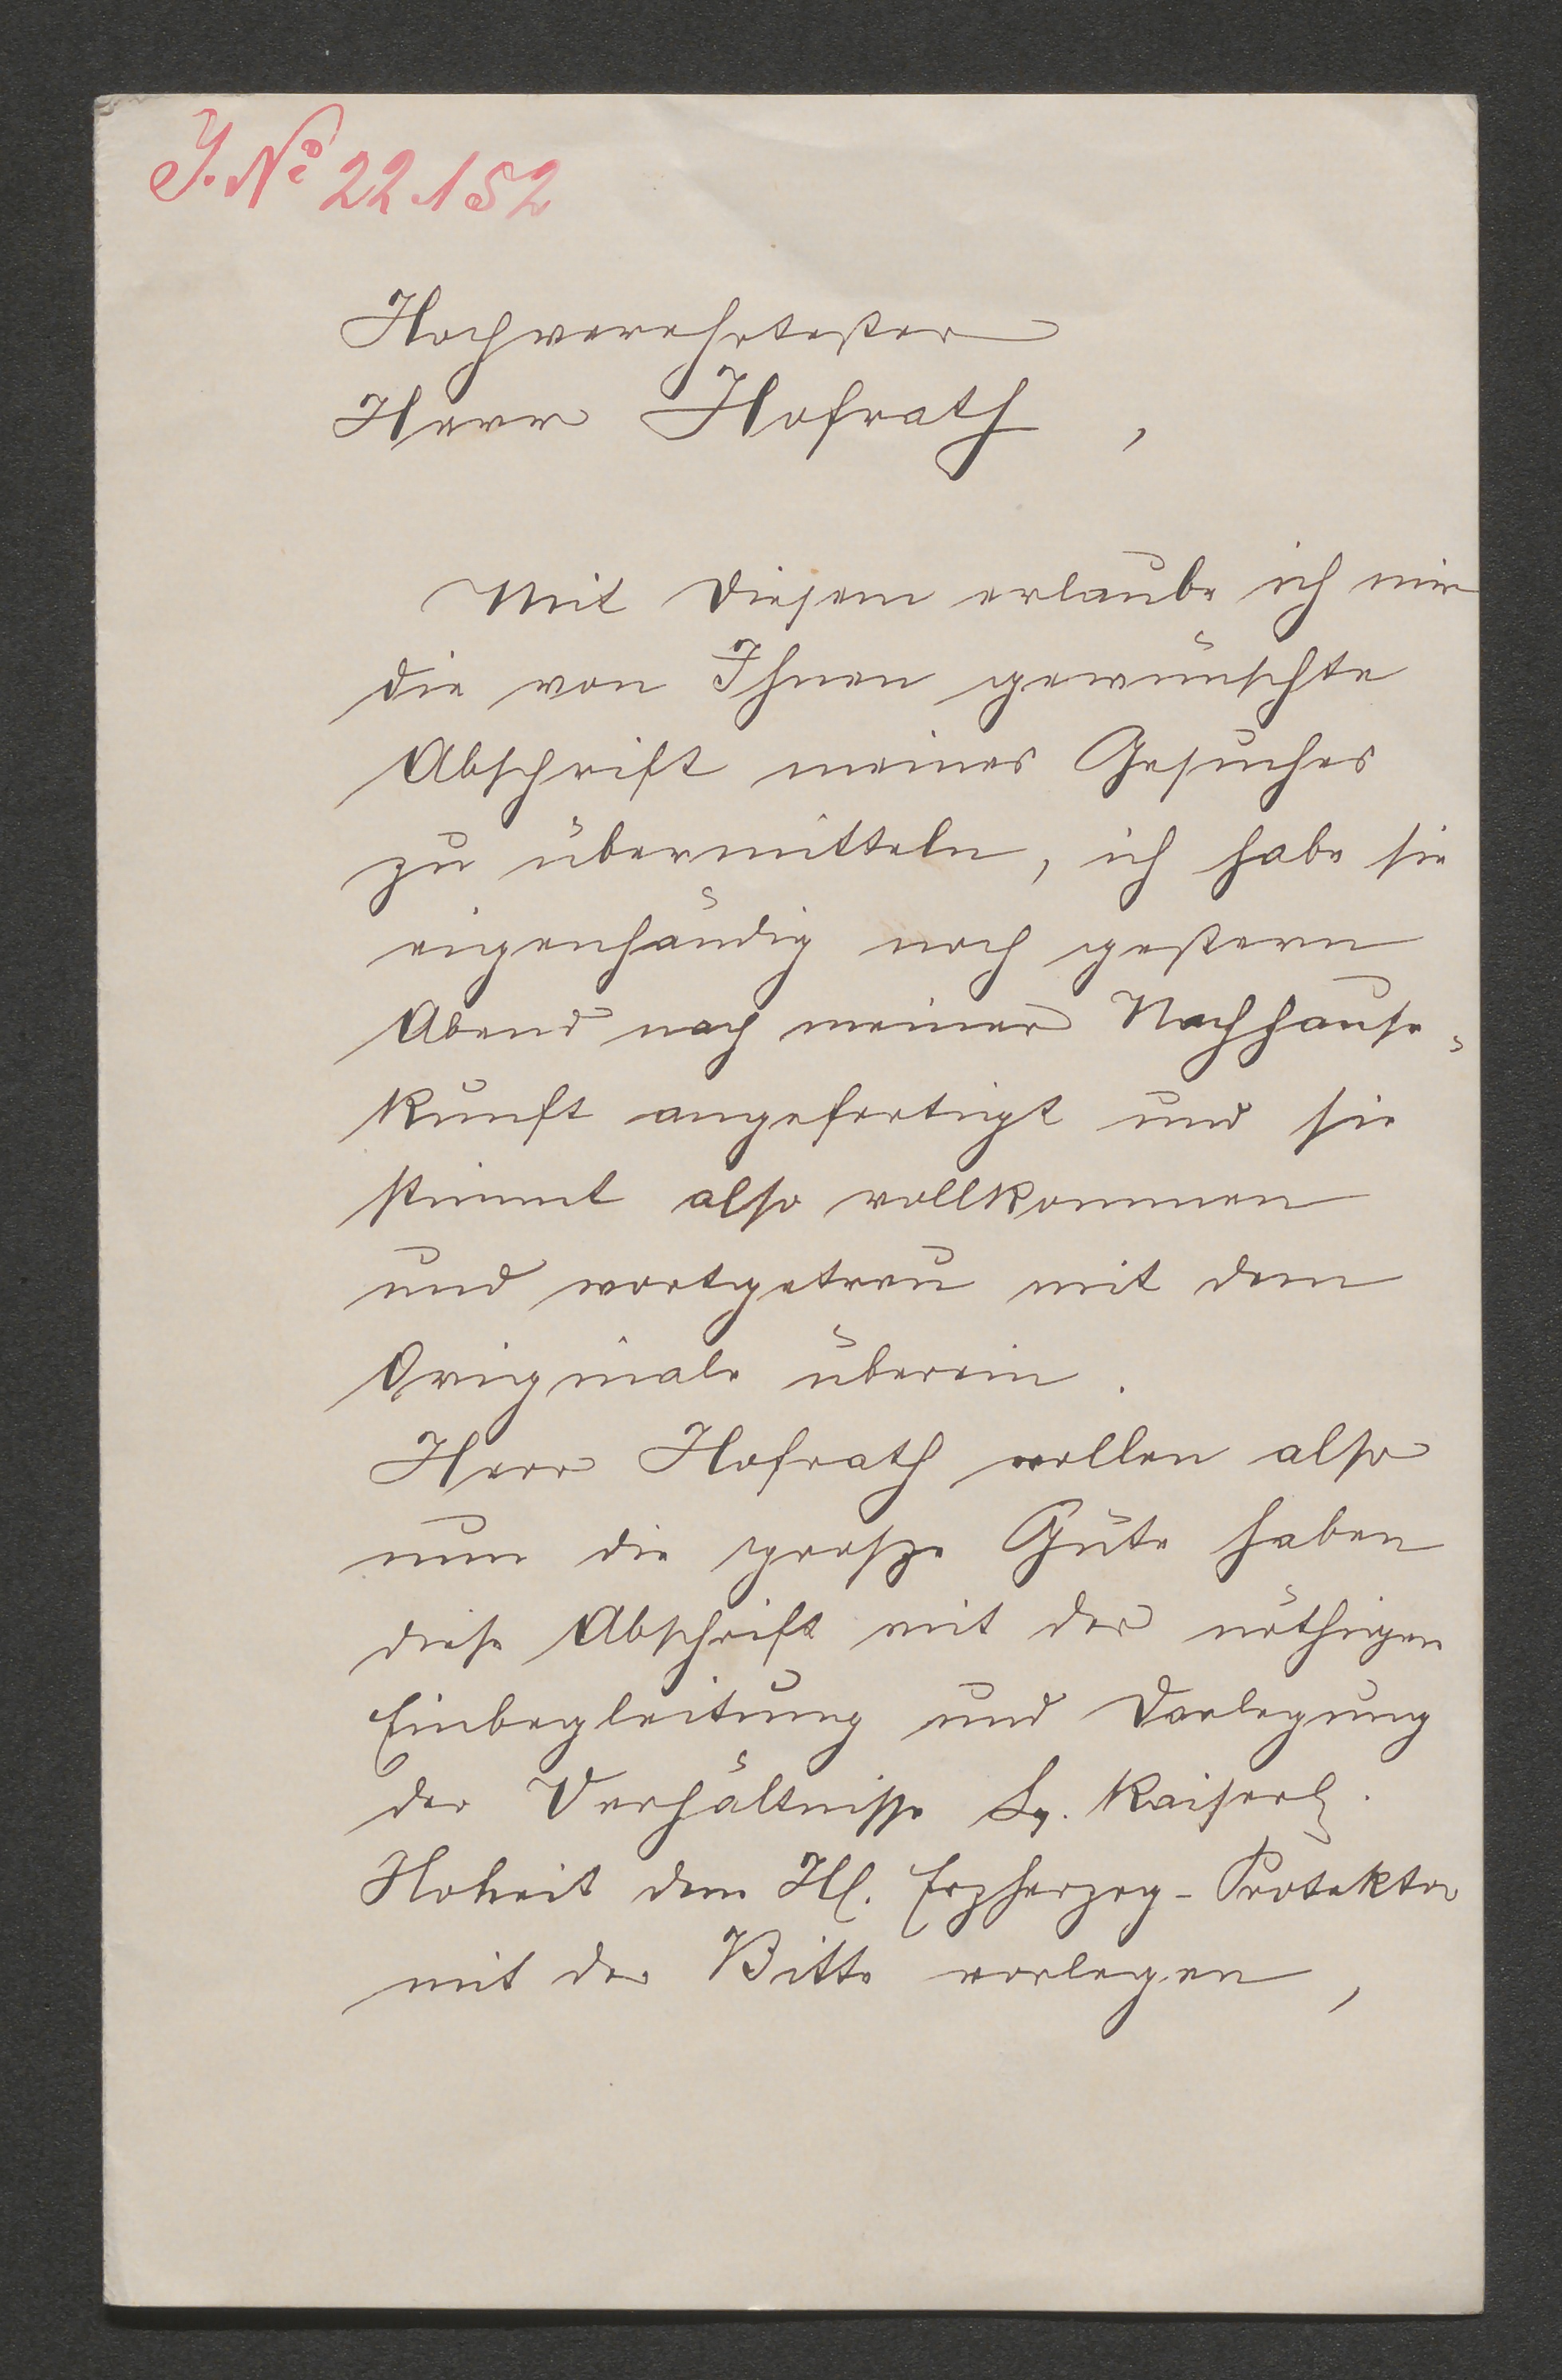 J. No 22.152
Hochverehrtester
Herr Hofrath,
Mit diesem erlaube ich mir
die von Ihnen gewünschte
Abschrift meines Gesuches
zu übermitteln, ich habe sie
eigenhändig noch gestern
Abend nach meiner Nachhause-
kunft angefertigt und sie
stimmt also vollkommen
und wortgetreu mit dem
Originale überein.
Herr Hofrath wollen also
nun die grosze Güte haben
diese Abschrift mit der nöthigen
Einbegleitung und Darlegung
der Verhältnisse Sr. Kaiserl.
Hoheit dem H. Erzherzog-Protektor
mit der Bitte vorlegen,